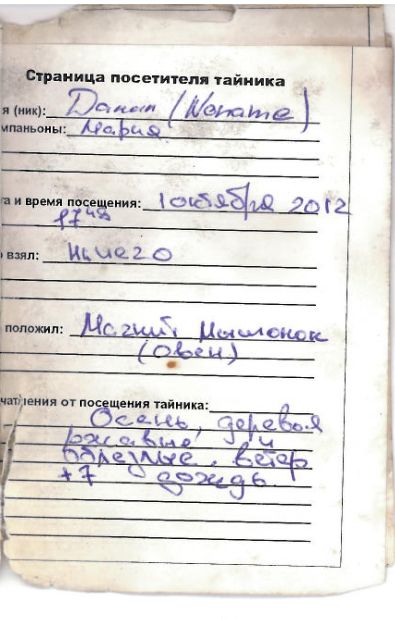 Страница посетителя тайника
я (ник): Данил (Noname)
мпаньоны: Мария
а и время посещения: 1 октября 2012
17 45
взял: Ничего
положил: Магнит, Мышонок
(Овен)
чатления от посещения тайника:
Осень, деревья
ржавые и
облезлые. ветер
+7 дождь